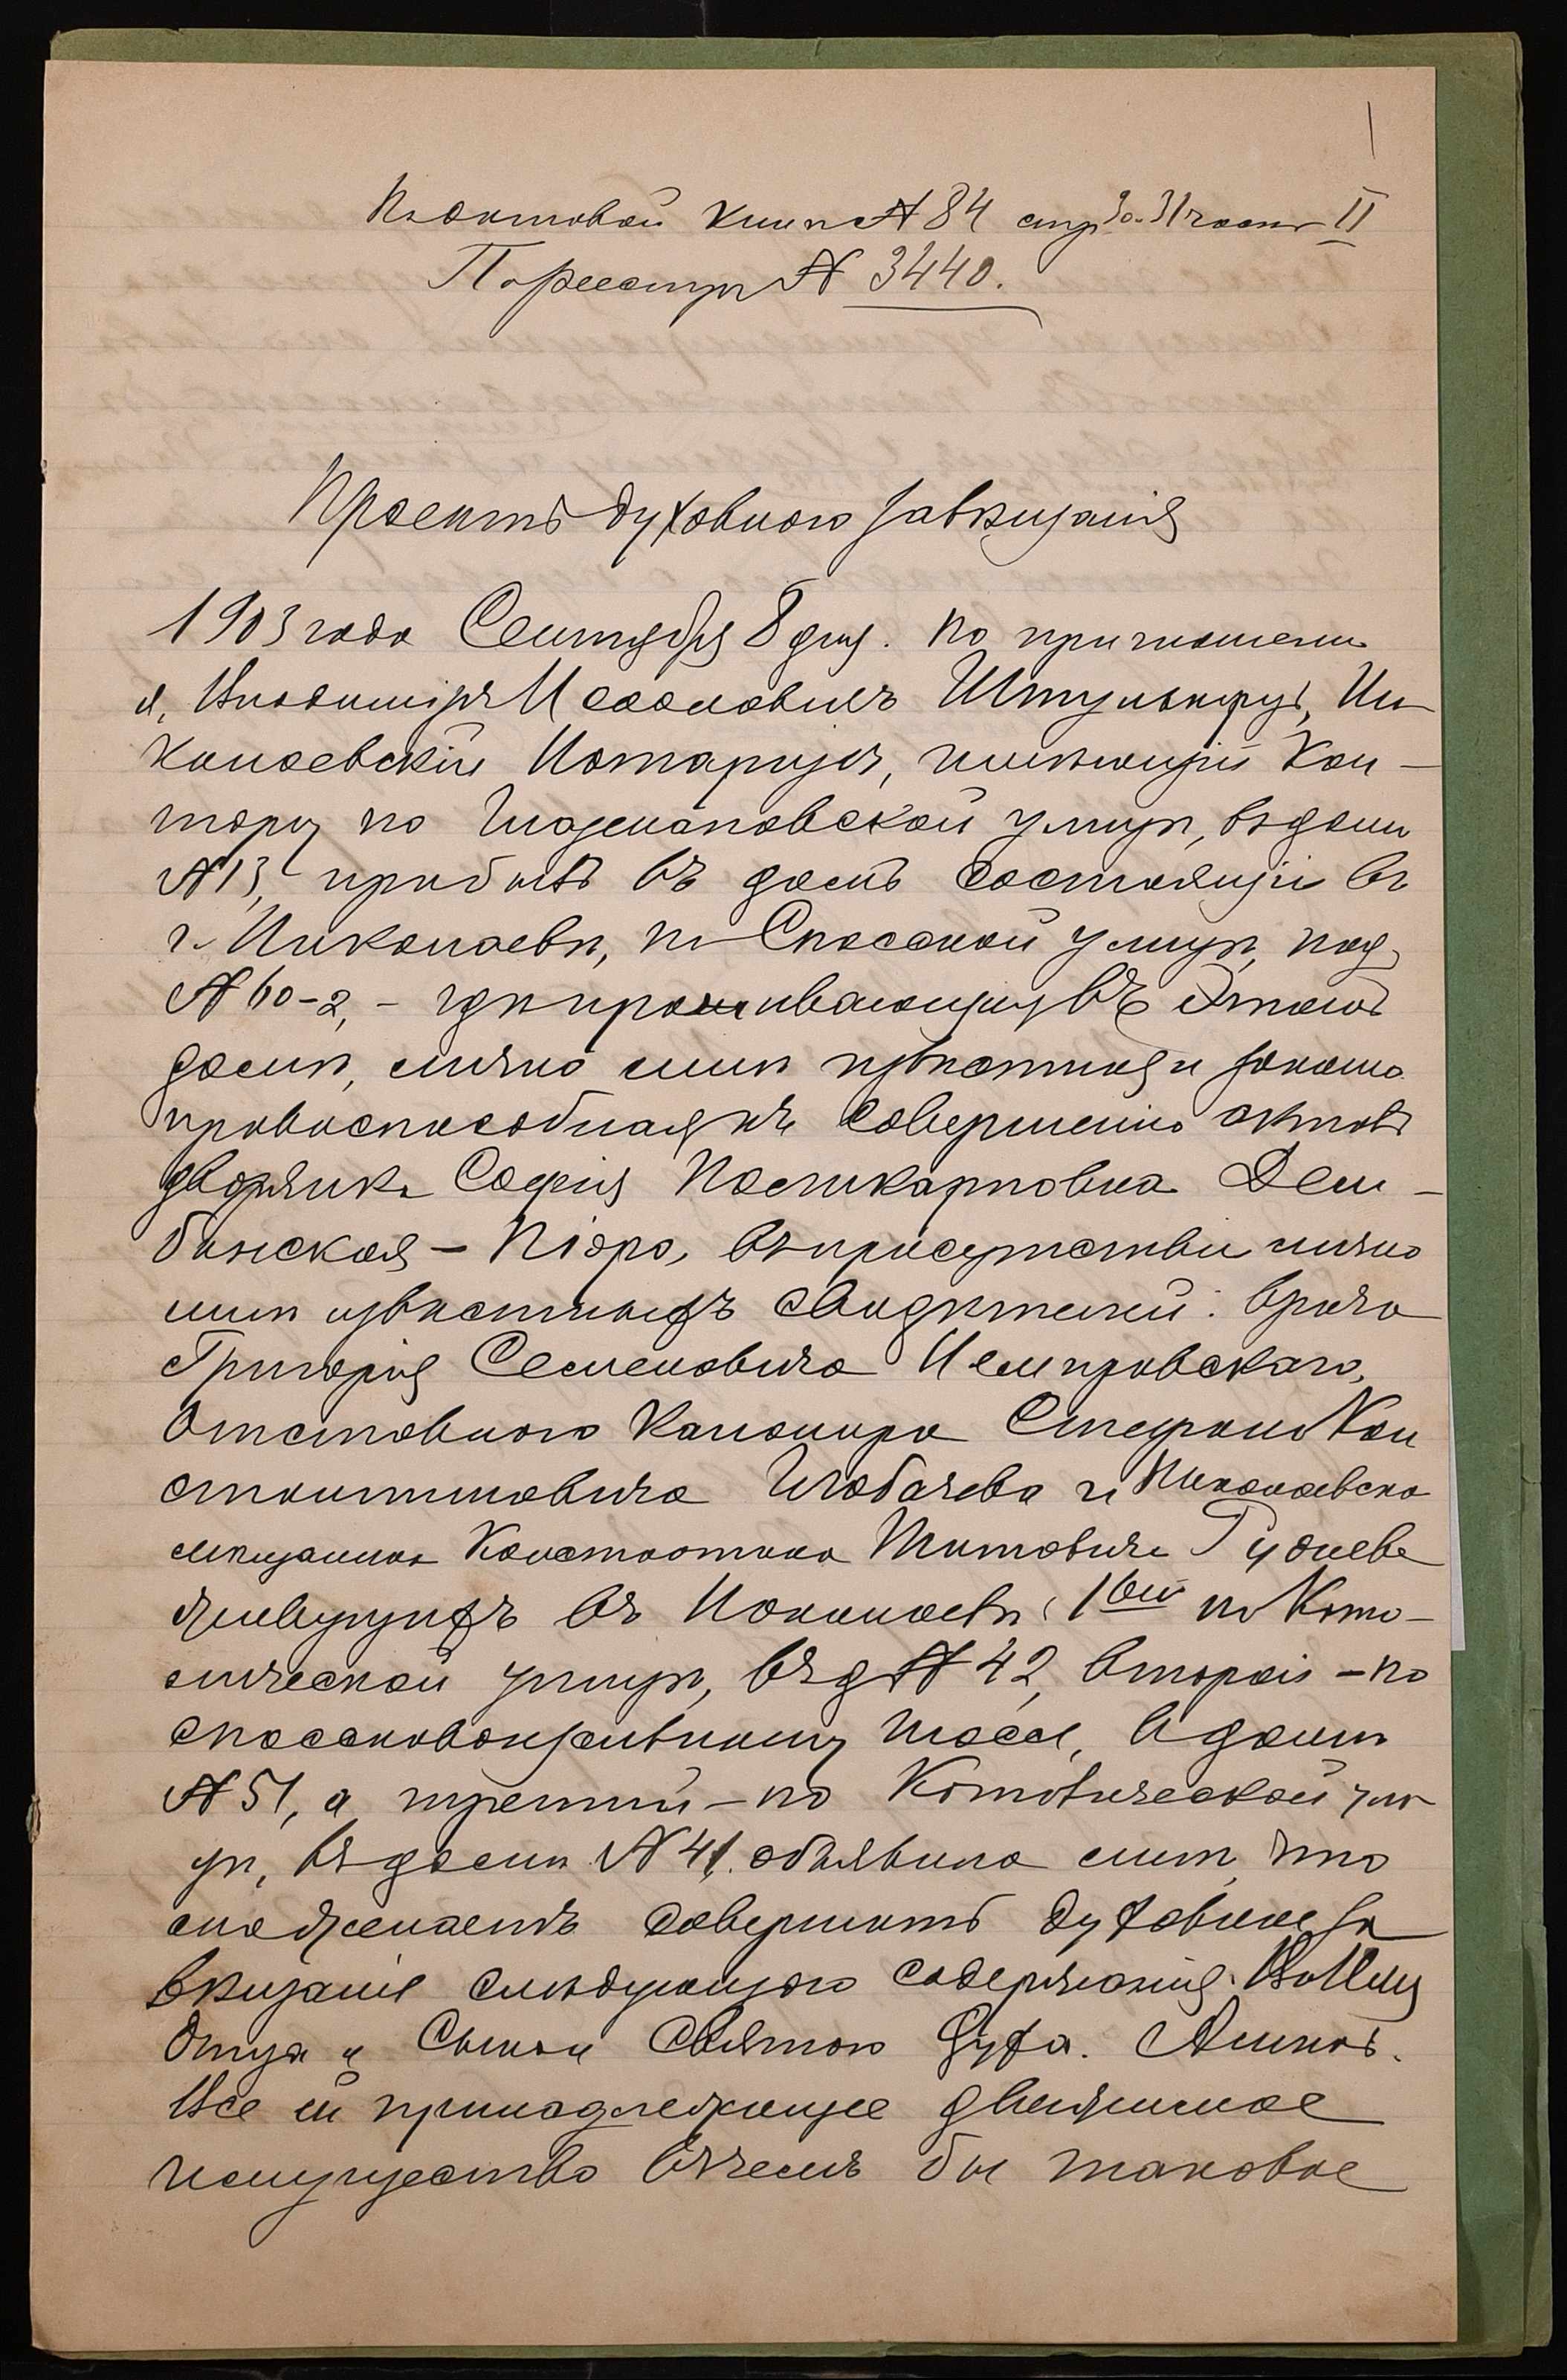 1
По актовой книгѣ № 84 стр 30-31 часть II
По реестру № 3440.
Проектъ духовнаго завѣщанія
1903 года Сентября 8 дня. По приглашенію
я, Владиміръ Исааковичъ Штулькерцъ, Ни
колаевскій Нотаріусъ, имѣющій кон-
тору по Глазенаповской улицѣ, въ домѣ
№ 13, прибылъ въ домъ состоящій въ
г. Николаевѣ, по Спасской улицѣ, под
№ 60-2, - гдѣ проживающая въ этомъ
домѣ, лично мнѣ извѣстная и законно
правоспособная къ совершенію актовъ
дворянка Софія Поликарповна Дем-
бинская - Піоро, въ присутствіи лично
мнѣ извѣстныхъ свидѣтелей: врача
Григорія Семеновича Немировскаго,
отставного канонира Стефана Кон
стантиновича Глобачева и Николаевскаго
мѣщанина Константина Титовича Гуднева
живущихъ въ Николаевѣ, 1вый по Като-
лической улицѣ, въ д № 42, второй - по
спасскокарантинному шоссе, в домѣ
№ 51, а третій - по Католической ули
цѣ, въ домѣ № 41. объявила мнѣ, что
она желаетъ совершить духовное за
вѣщаніе слѣдующаго содержанія: Во Имя
Отца и Сына и Святого Духа. Аминь.
Все ей принадлежащее движимое
имущество въ чемъ бы таковое